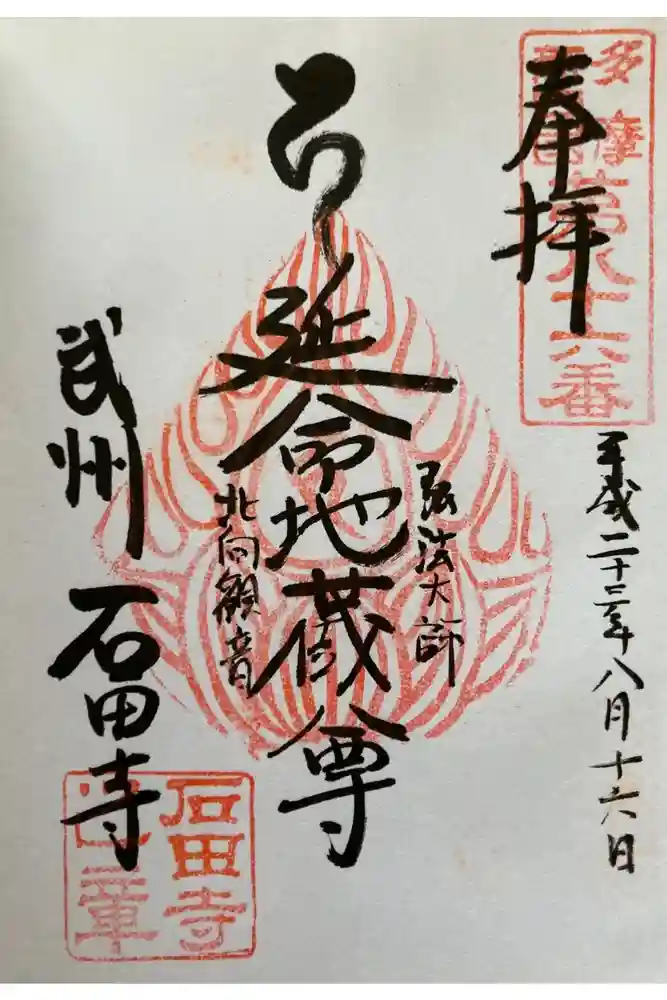 奉拝
多摩
第八十六番
平成二十三年八月十六日
弘法大師
延命地蔵尊
北向観音
武州 石田寺
石田寺
印章